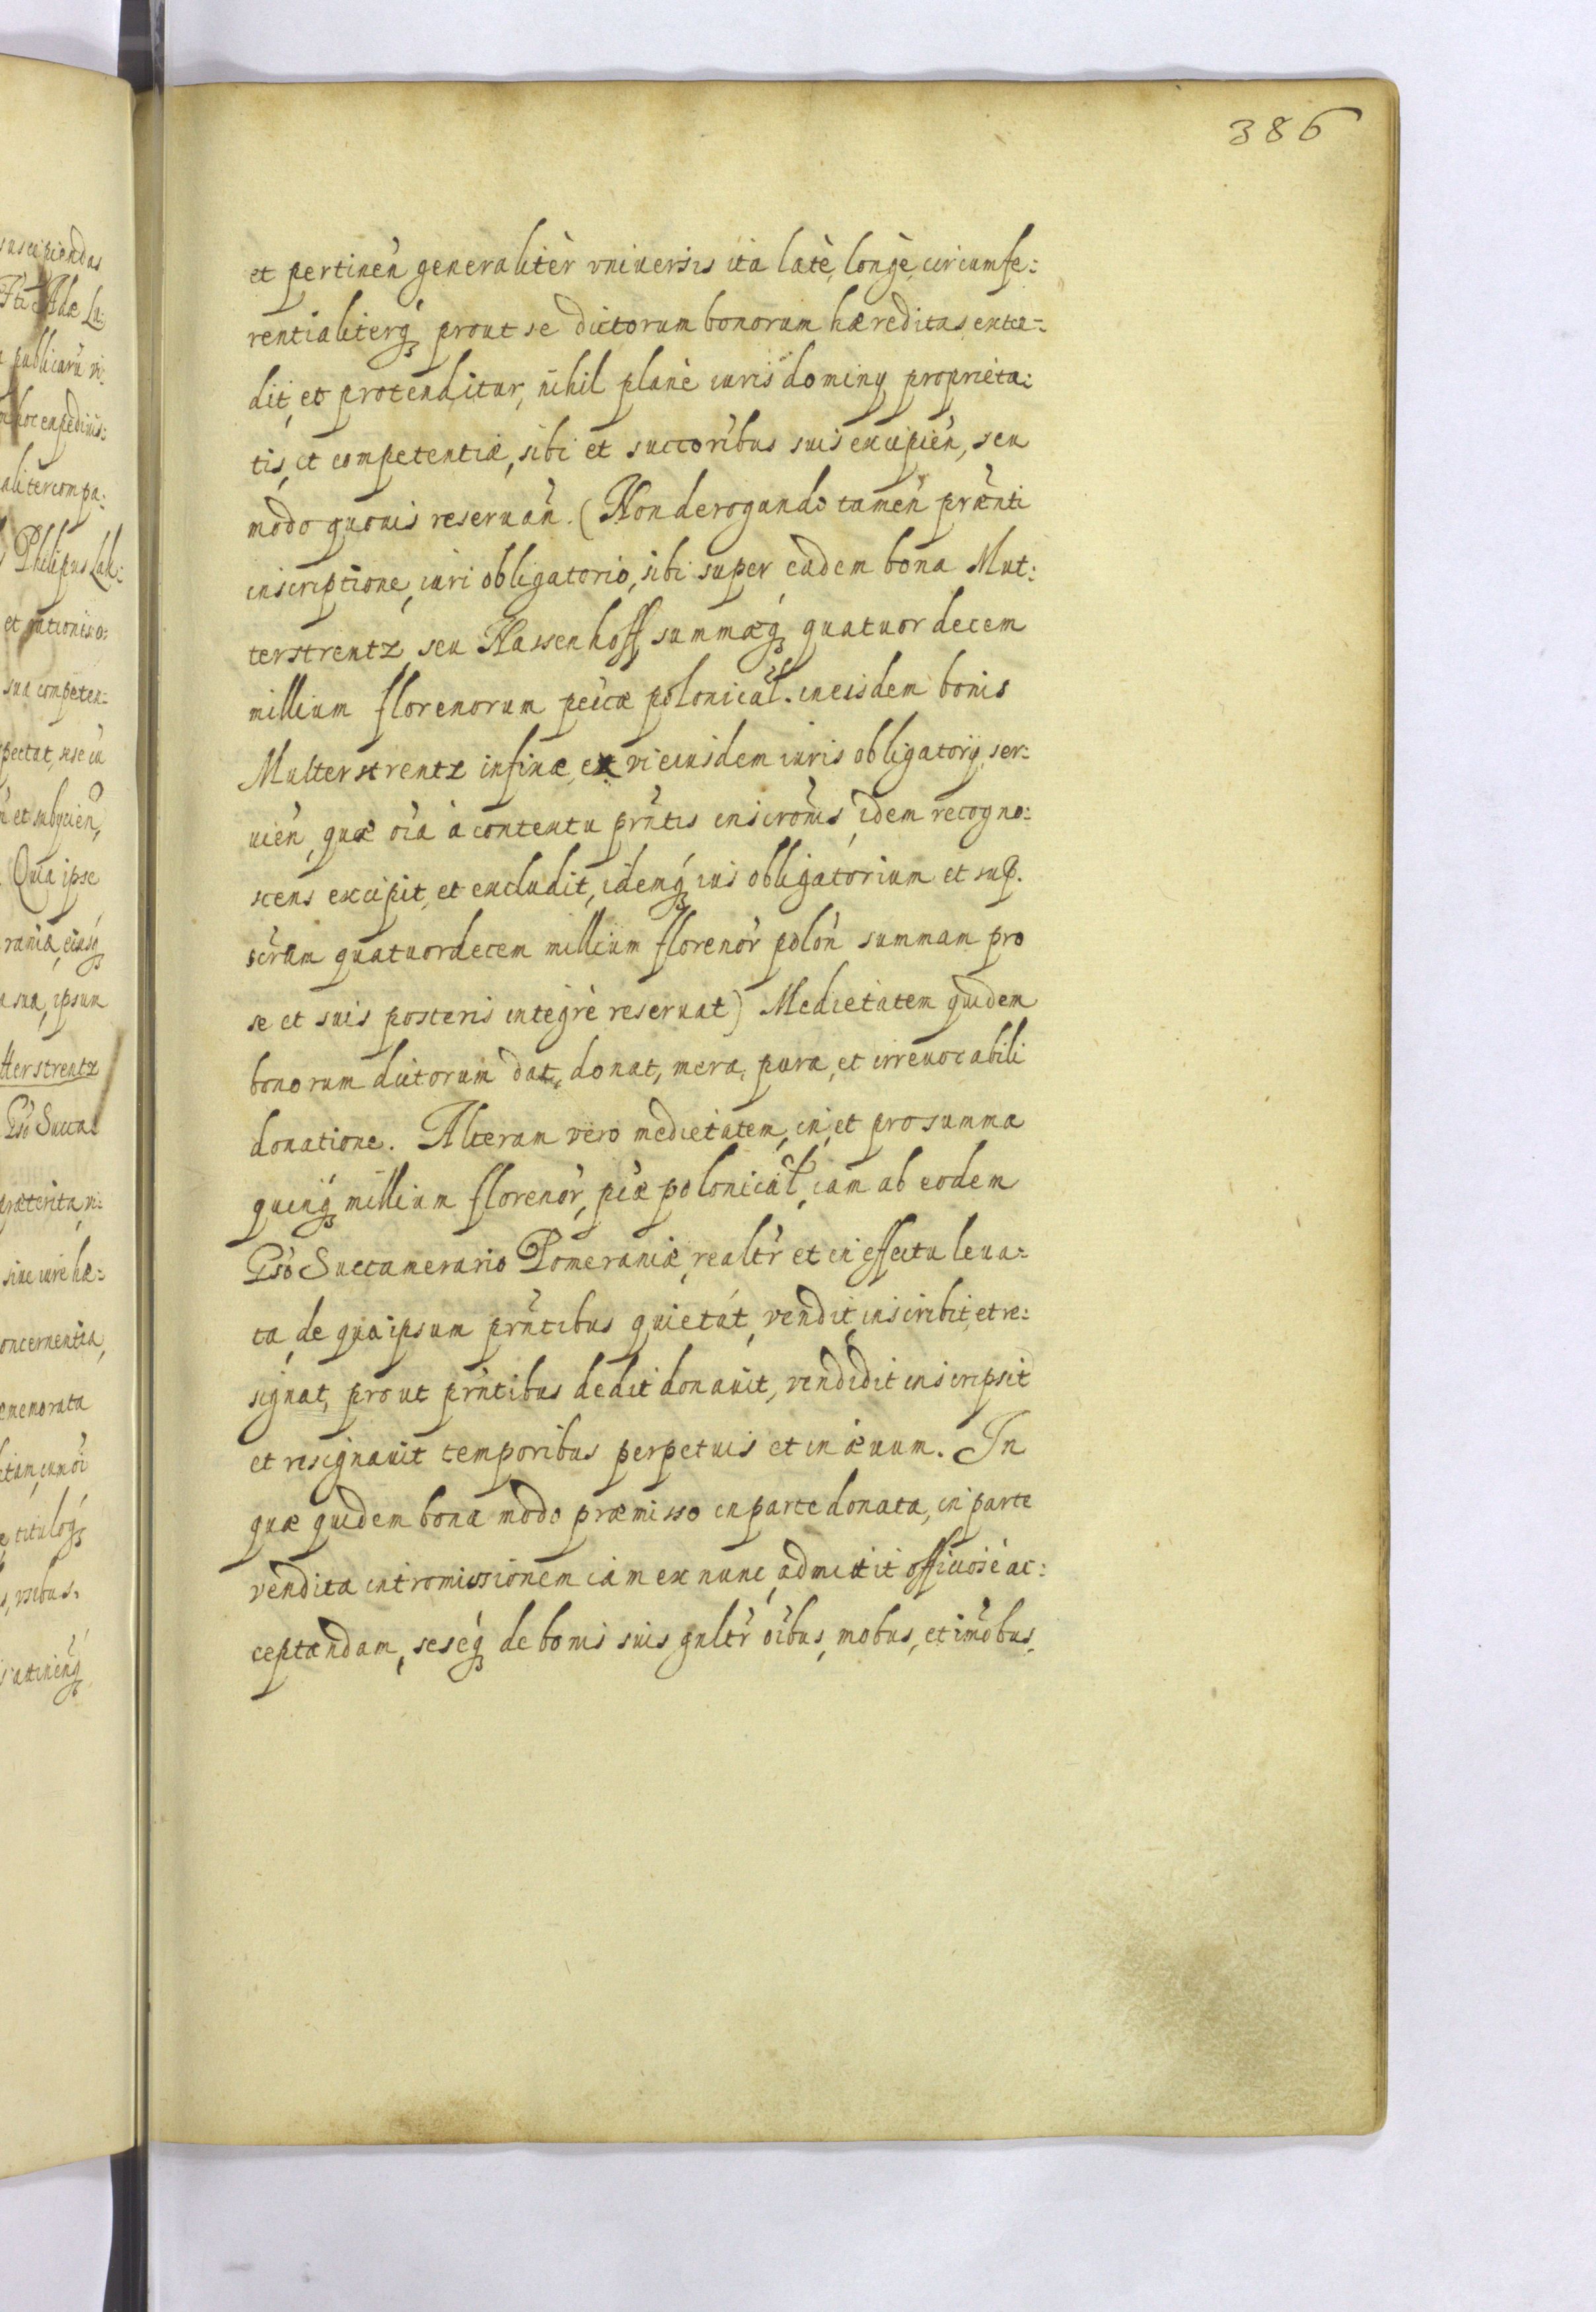 386
et pertineń generalitèr vniuersis ita latè, longè, circumfe:
rentialiterq́ȝ prout se dictorum bonorum hæreditas exte=
dit, et protenditur, nihil planè iuris dominij proprieta:
tis, et competentiæ, sibi et succoribus suis excipień, seu
modo quouis reseruań. (Non derogando tameń prænti
inscriptione, iuri obligatorio, sibi super eadem bona Mut:
terstrentz seu Hassenhoff, summæq́ȝ quatuor decem
millium florenorum peicæ polonicał. in eisdem bonis
Multerstrentz infixæ, ex vi eiusdem iuris obligatorij ser:
uień, quæ oia à contentu prńtis inscronis idem recogno:
scens excipit, et excludit, idemq́ȝ ius obligatorium et sup.
scram quatuordecem millium florenor̃ polon̉ summam pro
se et suis posteris integrè reseruat) Medietatem quidem
bonorum dictorum dat, donat, mera, pura, et irreuocabili
donatione. Alteram vero medietatem, in, et pro summa
quinq́ȝ millium florenor̃, pcæ polonicał, iam ab eodem
Gso Succamerario Pomeraniæ, realtr̃ et in effectu leua=
ta, de qua ipsum prńtibus quietát, vendit, inscribit, et re:
signat, prout prńtibus dedit donauit, vendidit inscripsit
et resignauit temporibus perpetuis et in æuum. In
quæ quidem bona modo præmisso in parte donata, in parte
vendita intromissionem iam ex nunc, admittit officiosè ac:
ceptandam, seseq́ȝ de bonis suis gnltr̃ oibus, mobus, et imobus,